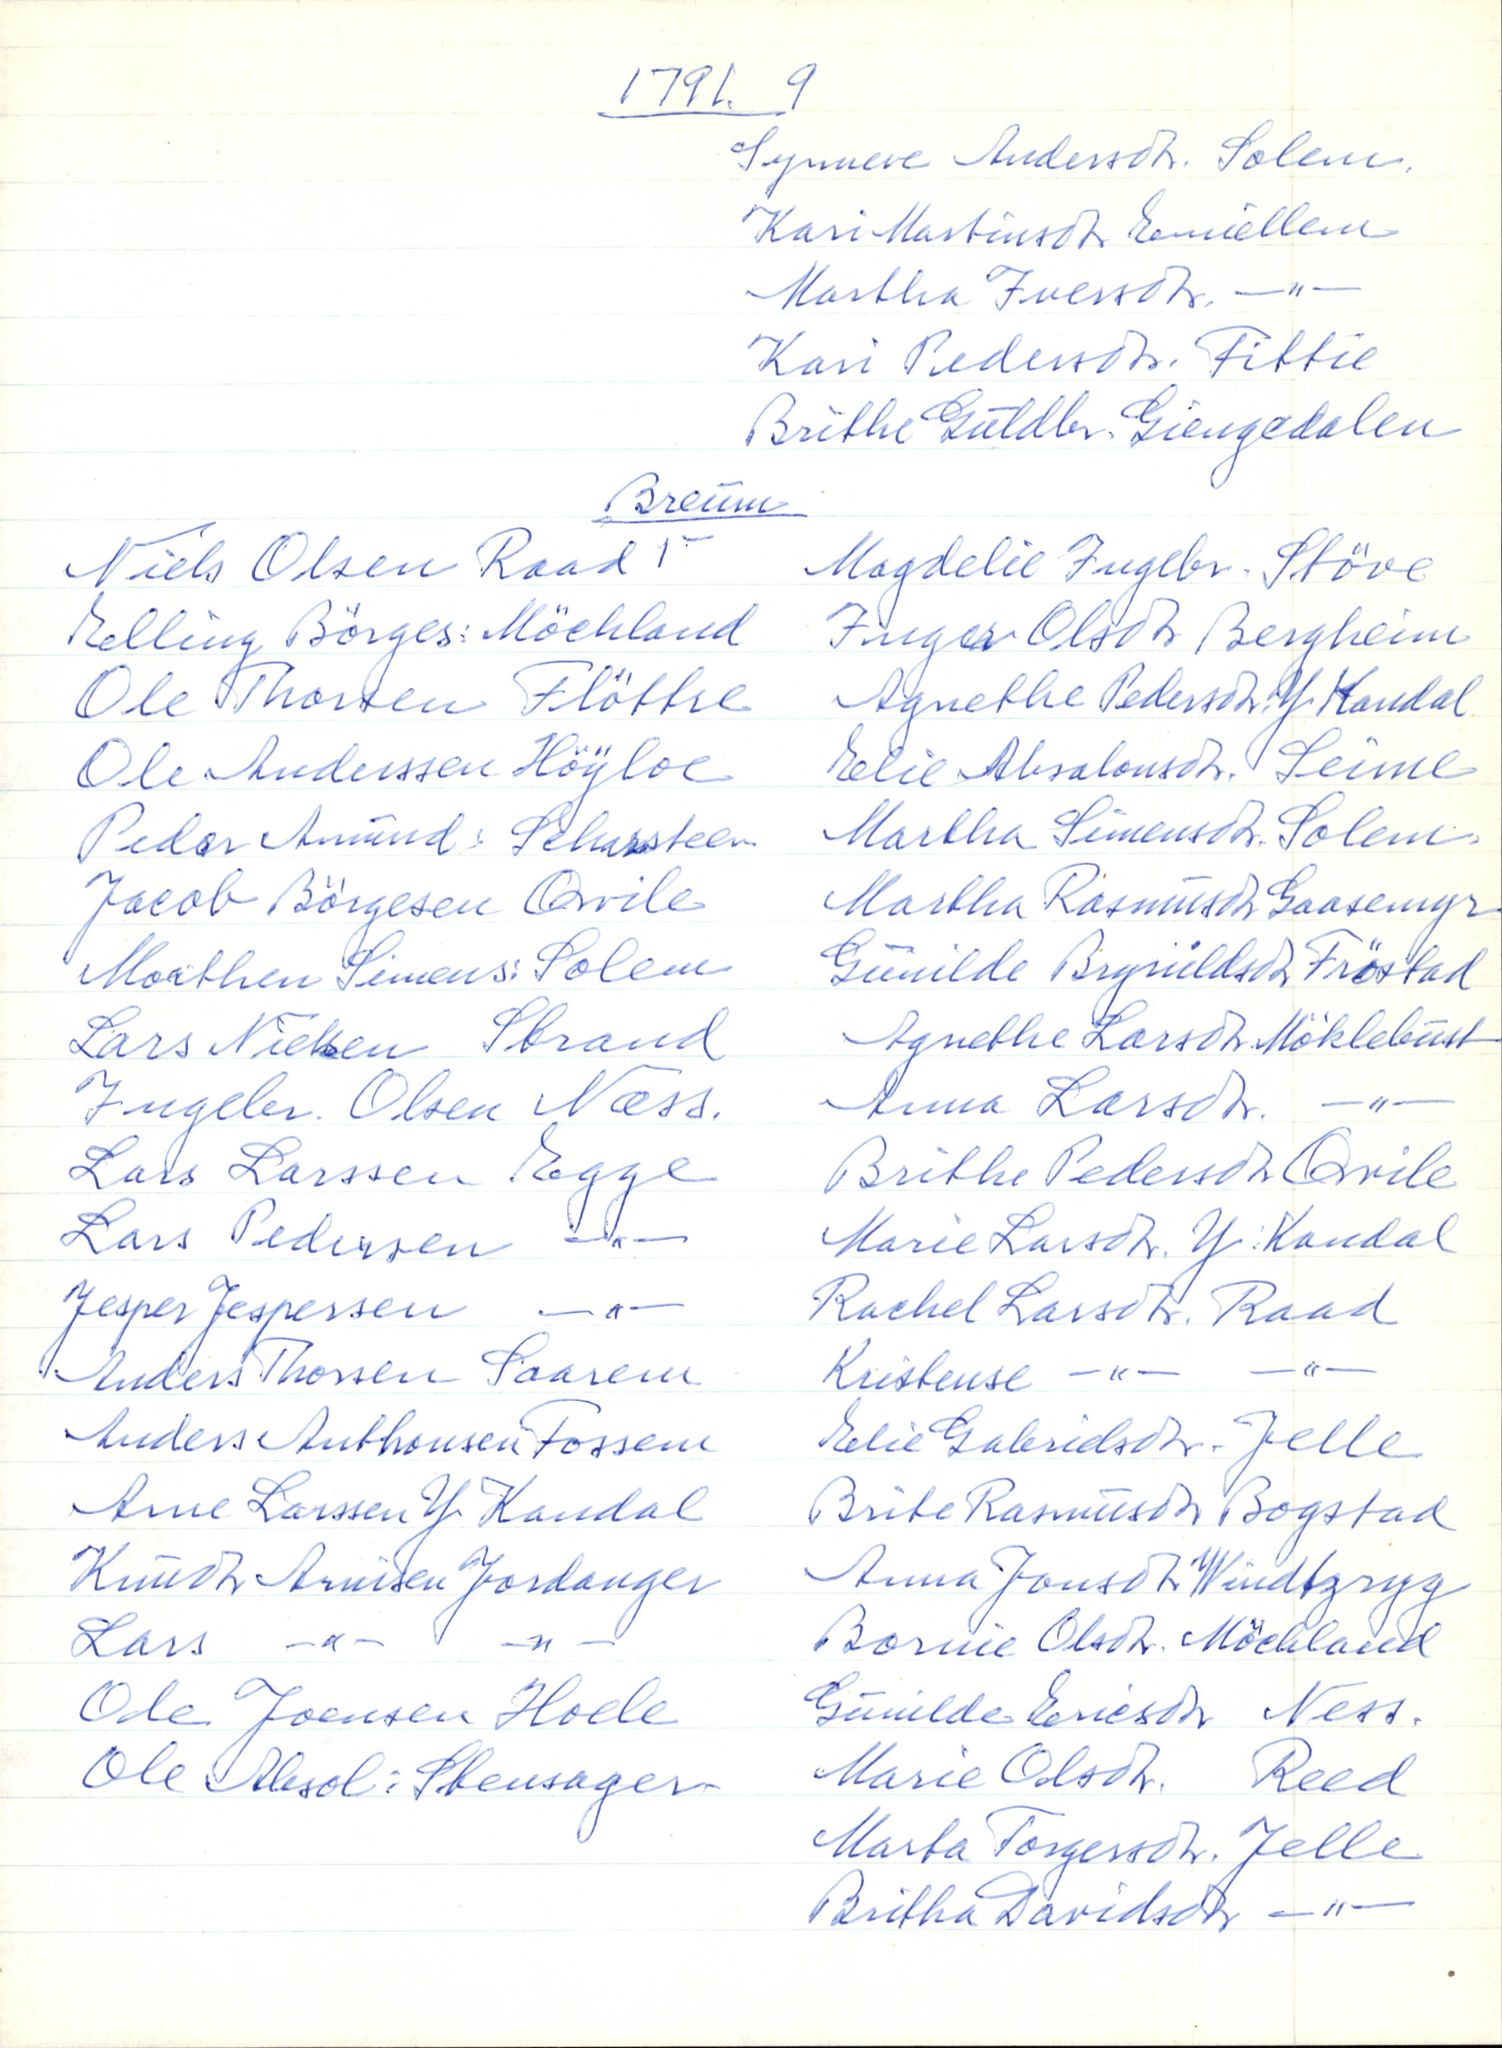 1791. 9
Synneve Andersdtr. Solem.
Kari Martinsdtr Emiellem
Martha Iversdtr. —"—
Kari Pedersdtr. Fittie
Brithe Güldbr. Giengedalen
Breüm
Niels Olsen Raad
Elling Börges: Möchland
Ole Thorsen Flöttre
Ole Anderssen Höÿloe
Peder Amünd: Scharsteen
Jacob Börgesen Qvile
Mathen Simens: Solem
Lars Nielsen Strand
Ingebr. Olsen Næss.
Lars Larssen Egge
Lars Pedersen —"—
Jesper Jespersen —"—
Anders Thorsen Saarem
Anders Anthonsen Fossem
Arne Larssen Y. Kandal
Knüdtr Arnisen Jordanger
Lars —"— —"—
Ole Joensen Hoele
Ole Absol: Stensager
Magdelie Ingebr. Stöve
Inger Olsdtr Bergheim
Agnethe Pedersdtr. Y. Kandal
Elie Absalonsdtr. Seime
Martha Simensdtr. Solem.
Martha Rasmüsdtr Gaasemyr
Günilde Brynildsdtr Fröstad
Agnethe Larsdtr. Möklebüst
Anna Larsdtr. —"—
Brithe Pedersdtr Qvile
Marie Larsdtr. Y: Kandal
Rachel Larsdtr. Raad
Kristense —"— —"—
Elie Gabrielsdtr. Jelle
Brite Rasmüsdtr Bogstad
Anna Jonsdtr Windtzryg
Bornie Olsdtr. Möchland
Günilde Ericsdtr Ness.
Marie Olsdtr. Reed
Marta Torgersdtr. Jelle
Britha Davidsdtr —"—